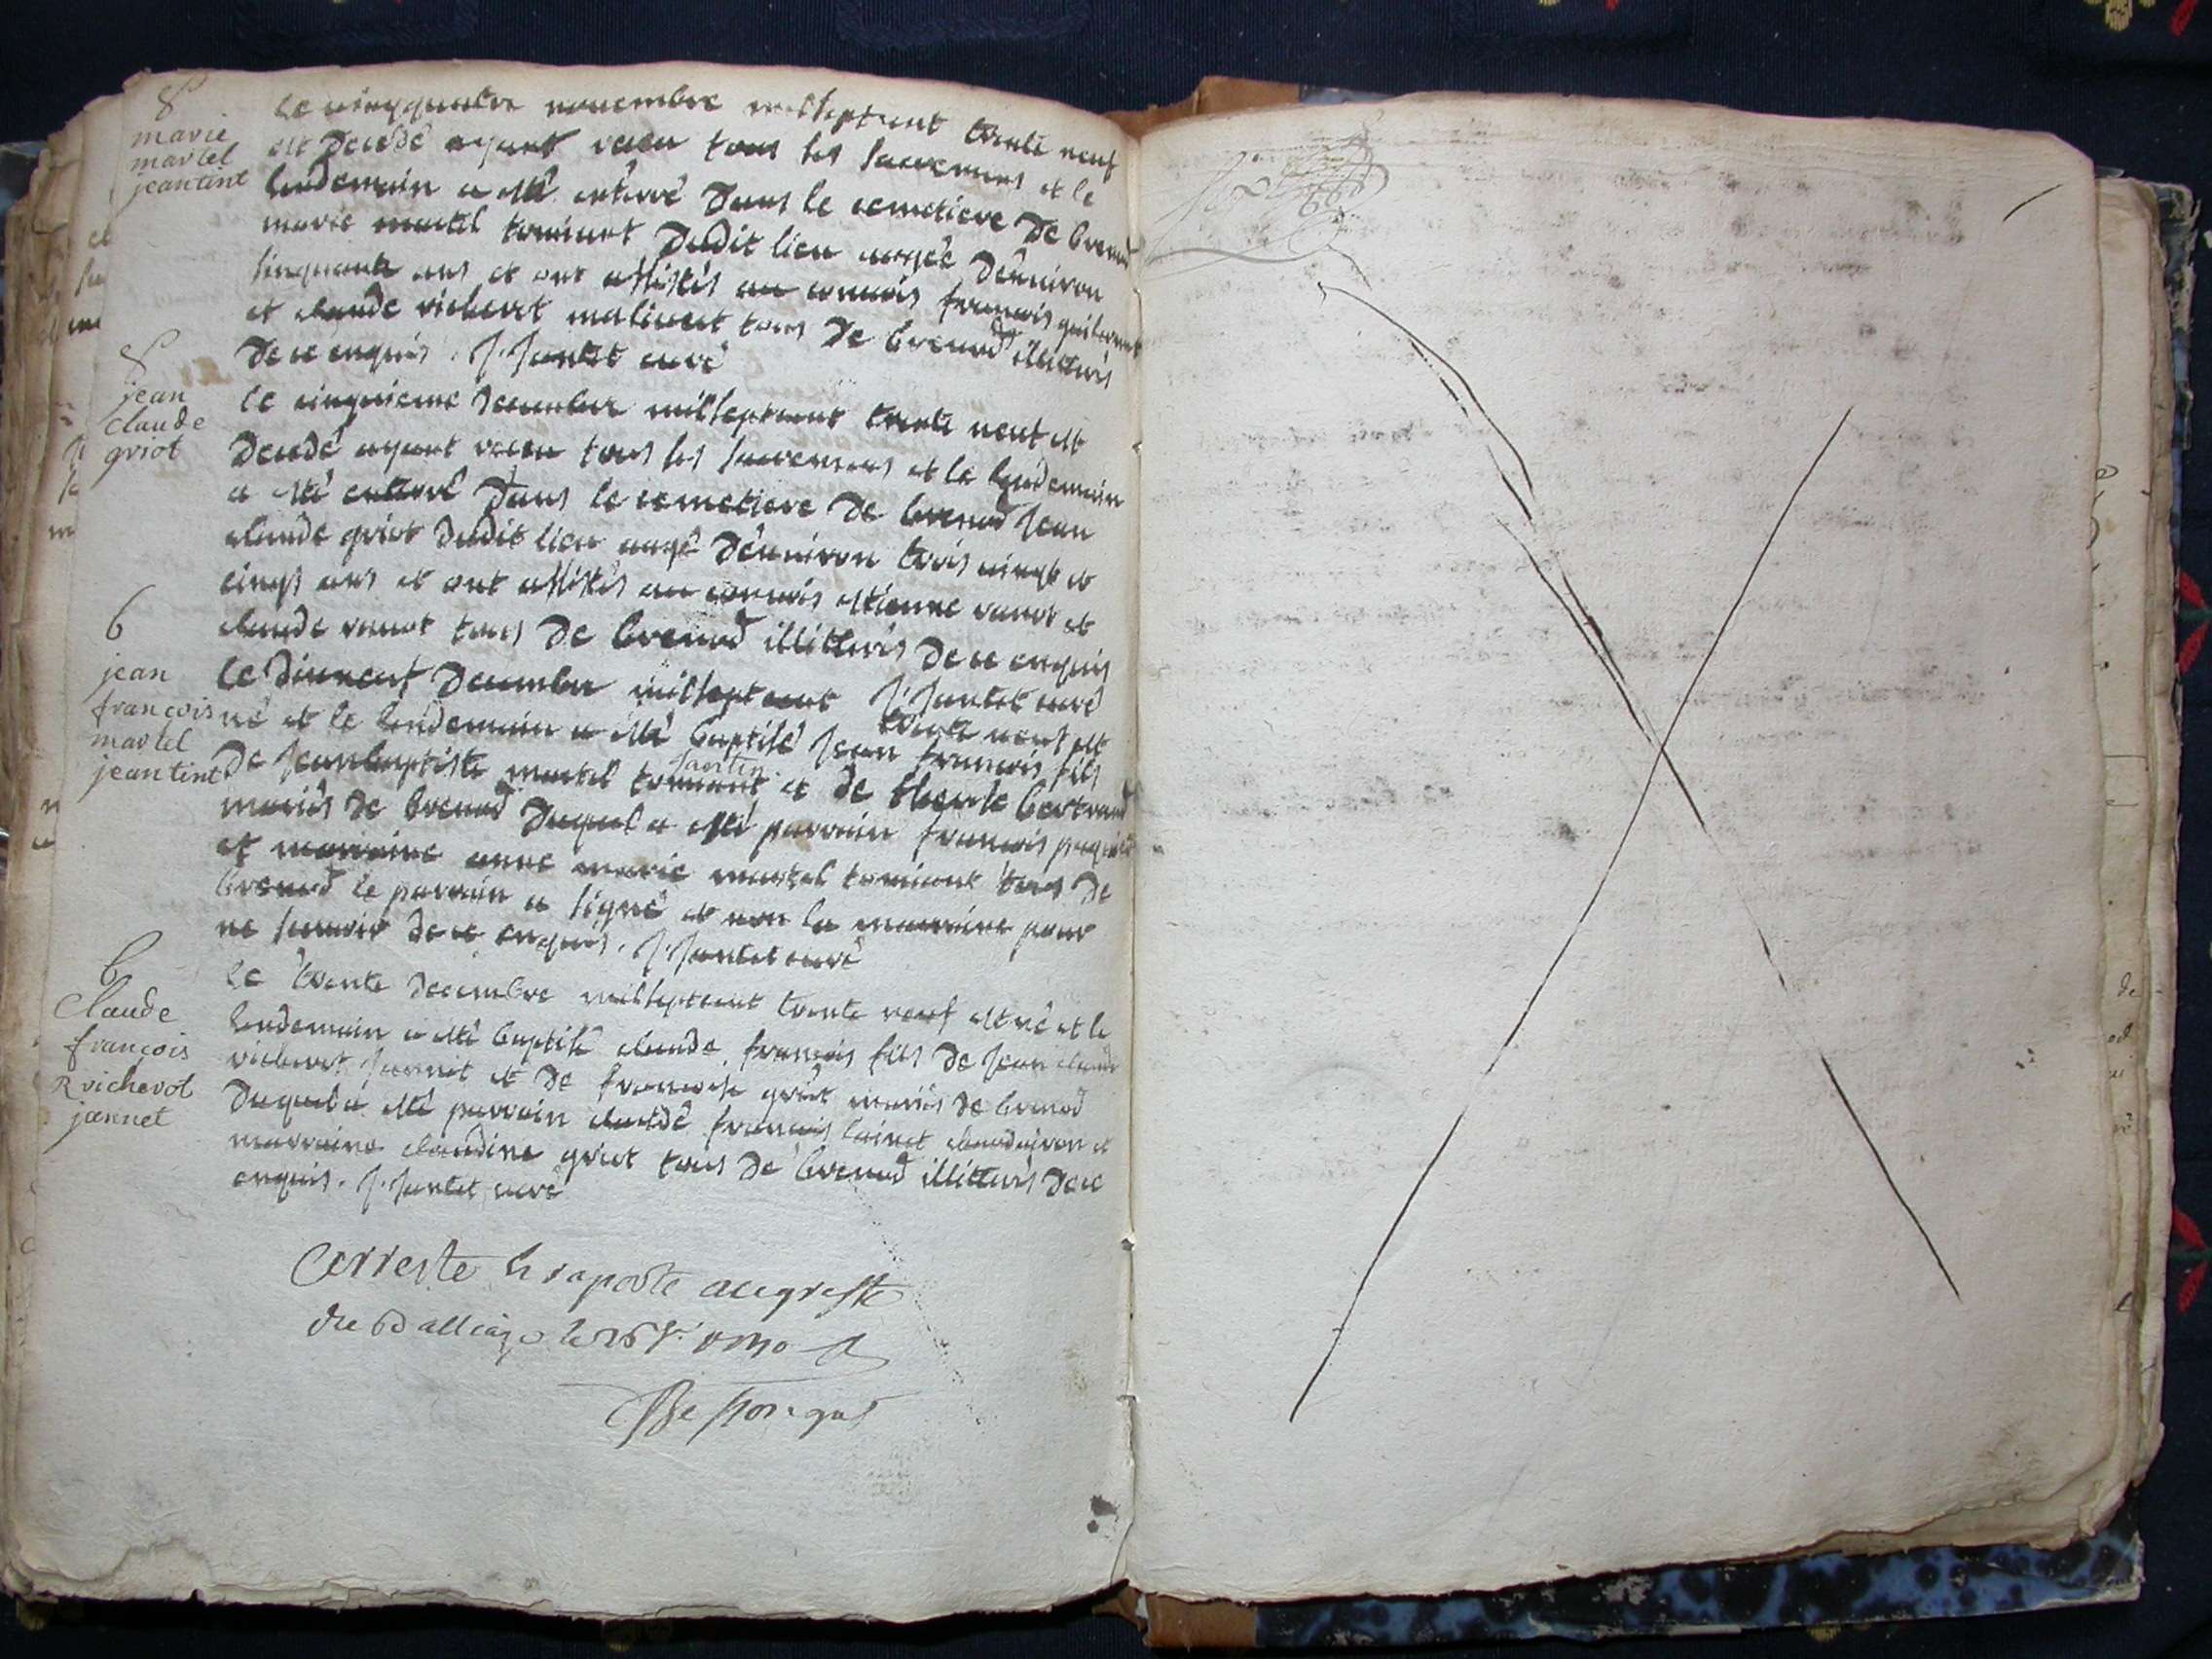 8
marie
martel
jeantint
le vingquatre novembre milseptcent trente neuf
est decedé ayant receu tous les sacremens et le
lendemain a esté enterré dans le cemetiere de brenod
marie martel dudit lieu aagée dênviron
sinquante ans et ont assistés au convois francois
et claude richerot tous de brenod illitterés
de ce enquis. J. Jantet curé
8
jean
claude
griot
le cinquieme decembre milseptcent trente neuf est
decedé ayant receu tous les sacremens et le lendemain
a esté enterré dans le cemetiere de brenod jean
claude griot dudit lieu aagé dênviron trois vingt et
cinqs ans et ont assistés au convois estienne vanot et
claude vanot tous de brenod illitterés de ce enquis
J. Jantet curé
6
jean
françois
martel
jeantint
le dixneuf decembre milseptcent trente neuf est
né et le lendemain a esté baptisé jean francois fils
de jeanbaptiste martel et de bertrand
mariés de brenod duquel a esté parrain francois
et marraine anne marie martel tous de
brenod le parrain a signé et non la marraine pour
ne scavoir de ce enquis. J. Jantet curé
b
Claude
françois
Richerot
jannet
le trente decembre milseptcent trente neuf est né et le
lendemain a esté baptisé claude francois fils de jean claude
richerot jannet et de francoise griot mariés de brenod
duquel a esté parrain claude francois et
marraine claudine griot tous de brenod illitterés de ce
enquis. J. Jantet curé
Arresté et raporté au greffe
du Balliage le